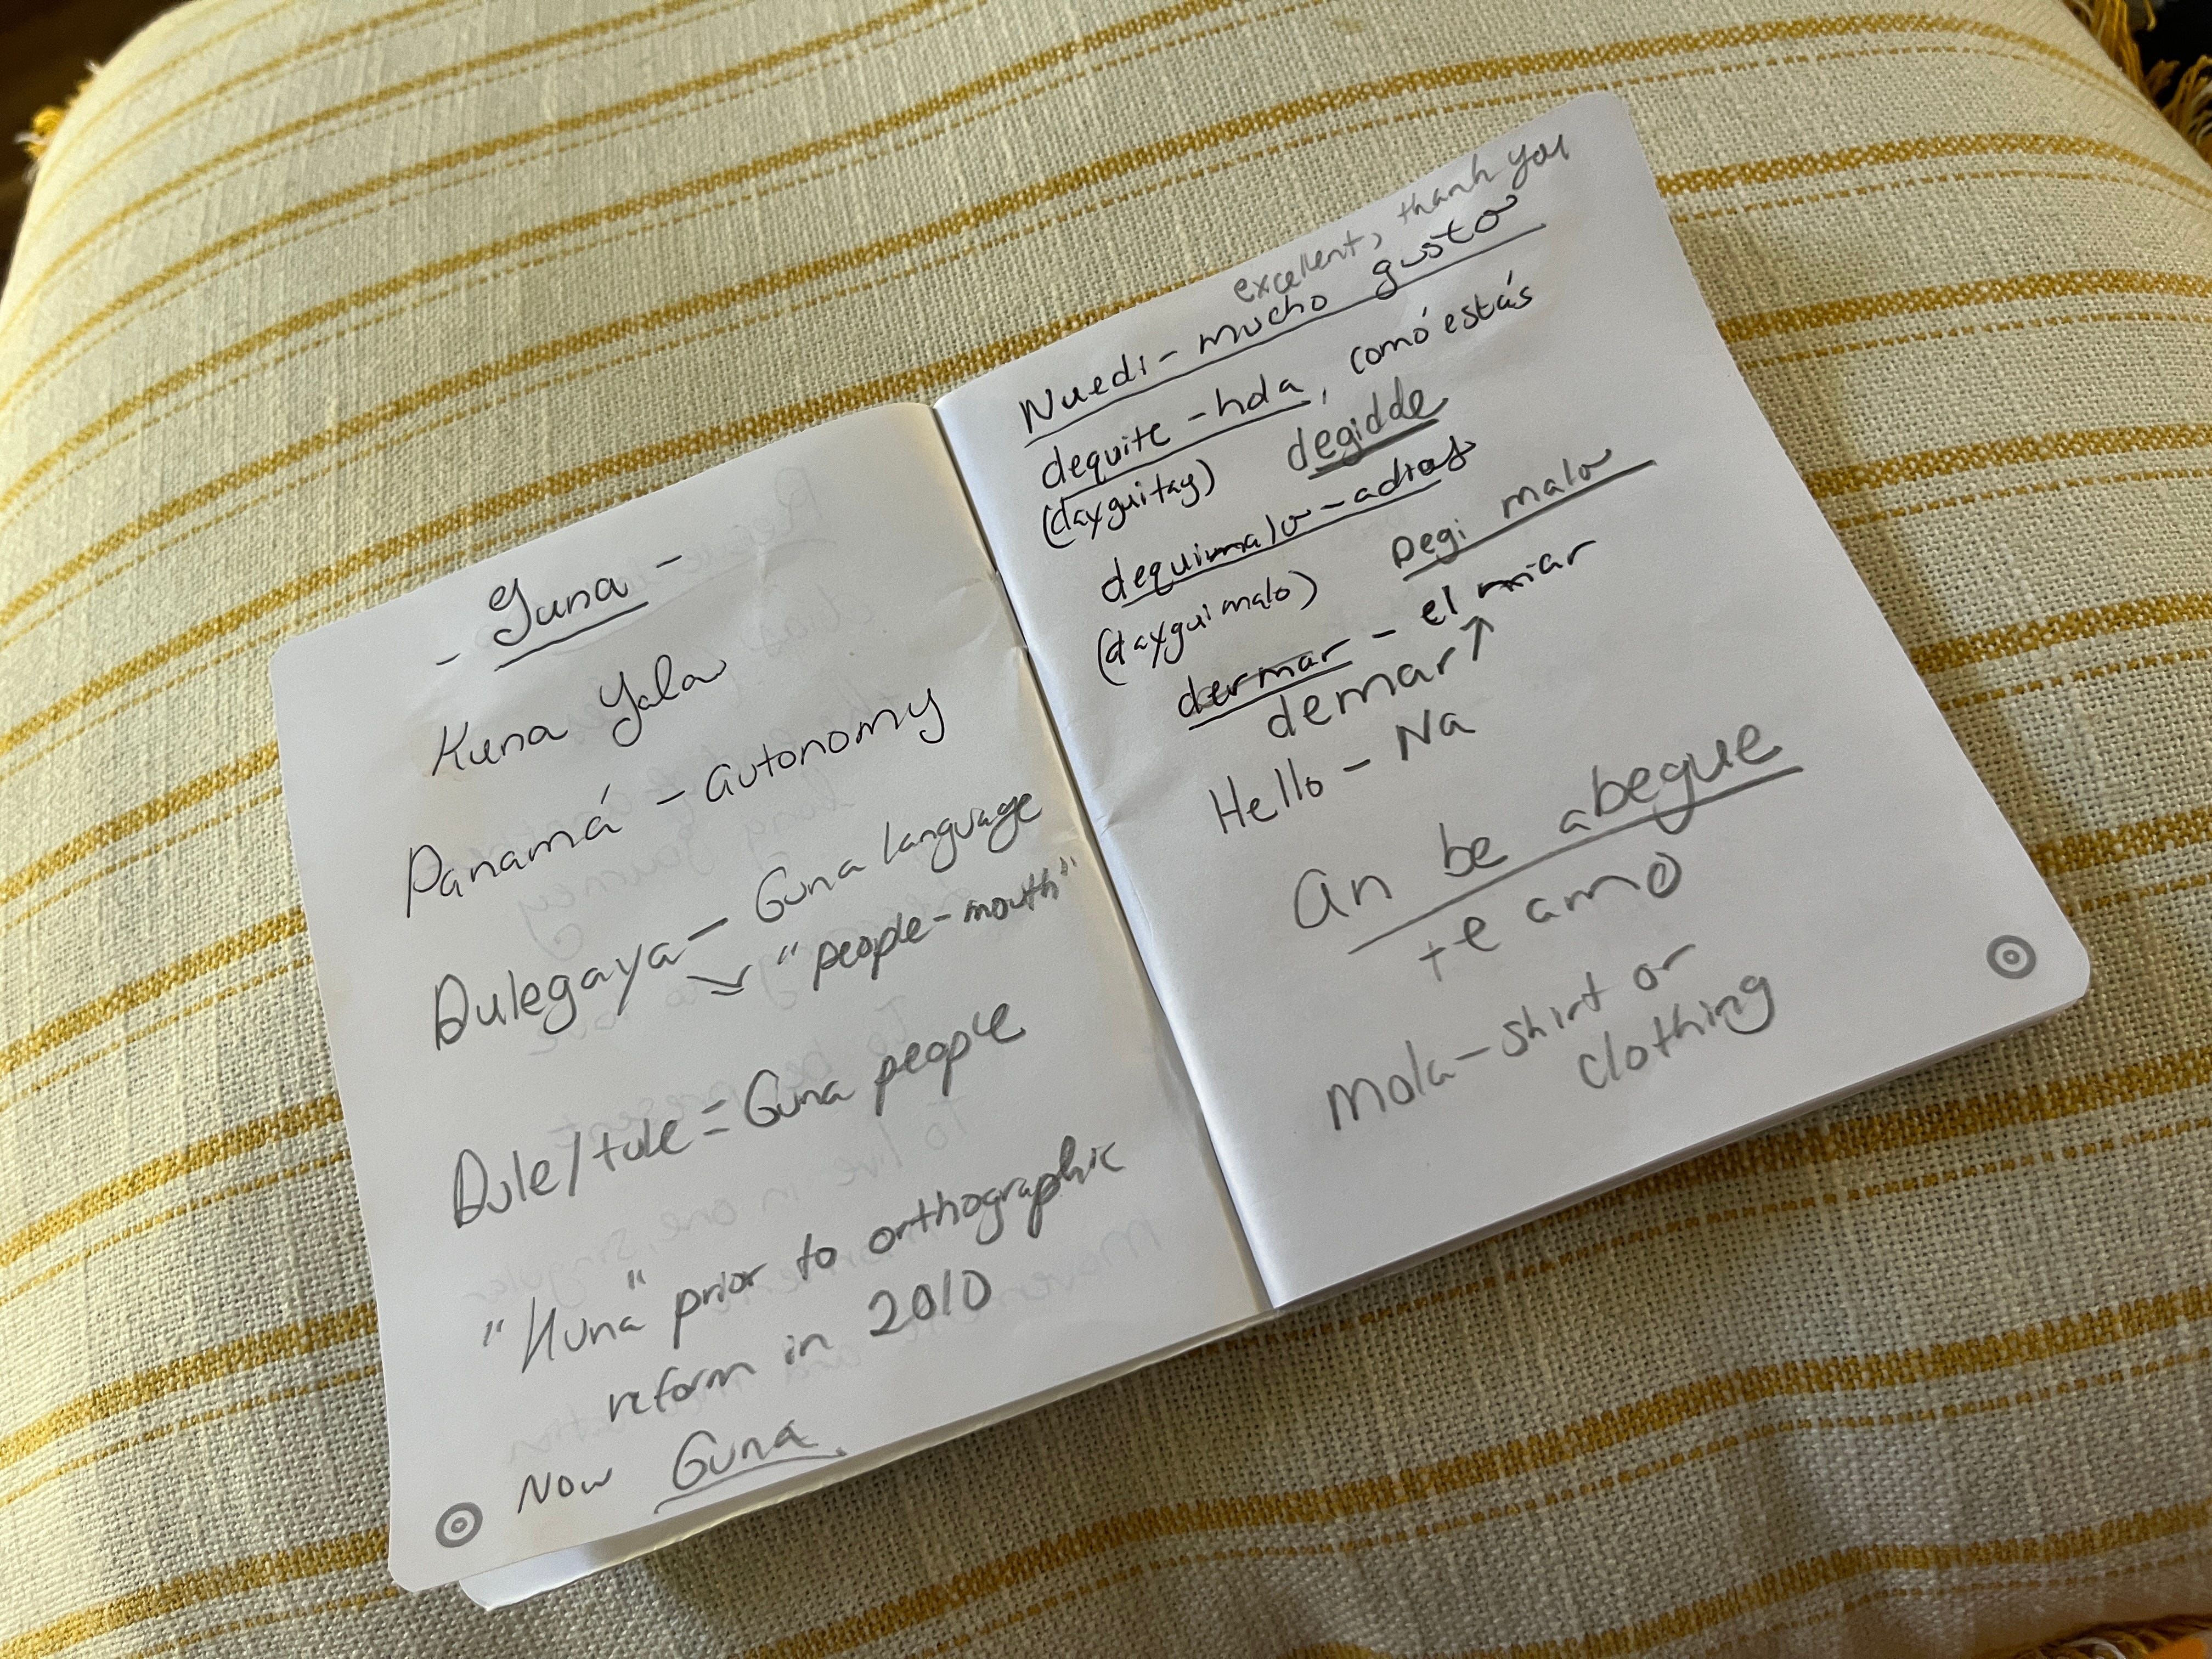 - Guna -
Kuna Yala
Panamá - autonomy
Dulegaya - Guna language
"people-mouth"
Dule/tule = Guna people
"Kuna" prior to orthographic
reform in 2010
Now Guna.
excellent, thank you
Nuedi - mucho gusto
dequite - hola, comó estás
(dayguitay) degidde
dequimalo - adios
(dayguimalo) Degi malo
dermar - el mar
demar ↑
Hello - Na
an be abegue
te amo
mola - shirt or
clothing